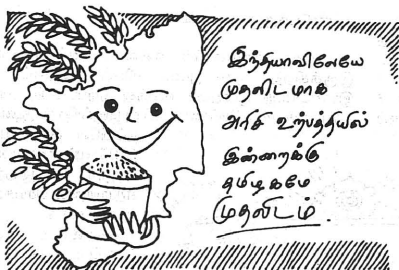 இந்தியாவிலேயே
முதலிடமாக
அரிசி உற்பத்தியில்
இன்றைக்கு
தமிழகமே
முதலிடம்.